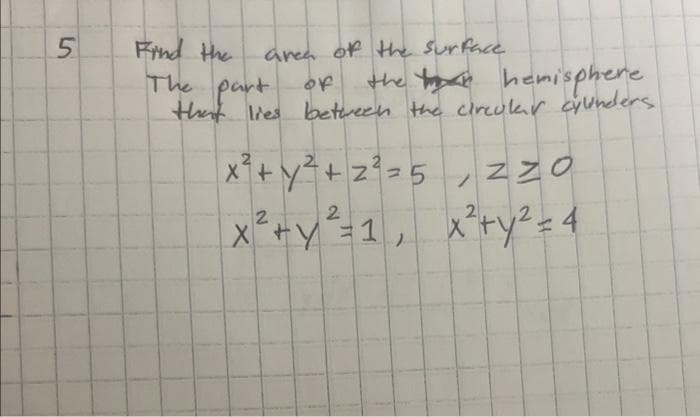 5 Find the area of the surface
The part of the hemisphere
that lies between the circular cylinders
x²+y²+z²=5 , z≥0
x²+y²=1, x²+y²=4